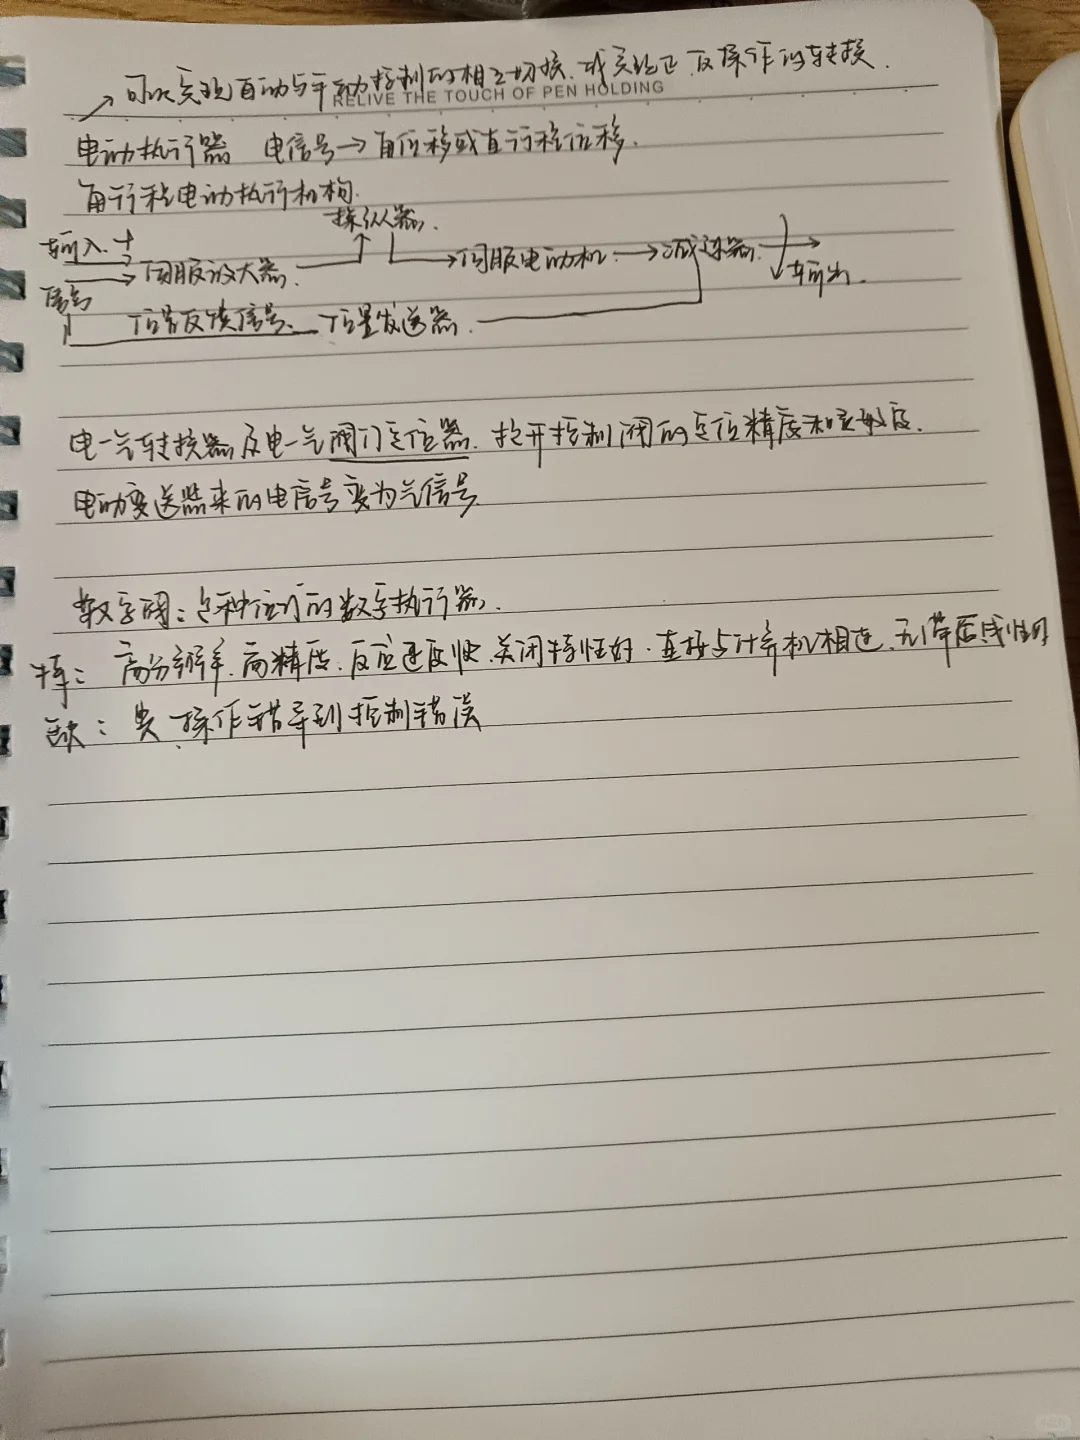 可以实现自动与手动控制的相互切换.或实现正.反操作的转换.
RELIVE THE TOUCH OF PEN HOLDING
电动执行器 电信号→角位移或直行程位移.
角行程电动执行机构.
操纵器.
输入 + 伺服放大器. 伺服电动机 → 减速器. 输出.
信号
位置反馈信号. 位置发送器.
电一气转换器及电一气阀门定位器.提升控制阀的定位精度和灵敏度.
电动变送器来的电信号变为气信号.
数字阀:是种位行的数字执行器.
特: 高分辨率.高精度.反应速度快.关闭特性好.直接与计算机相连.无滞后
缺: 操作错导到控制错误